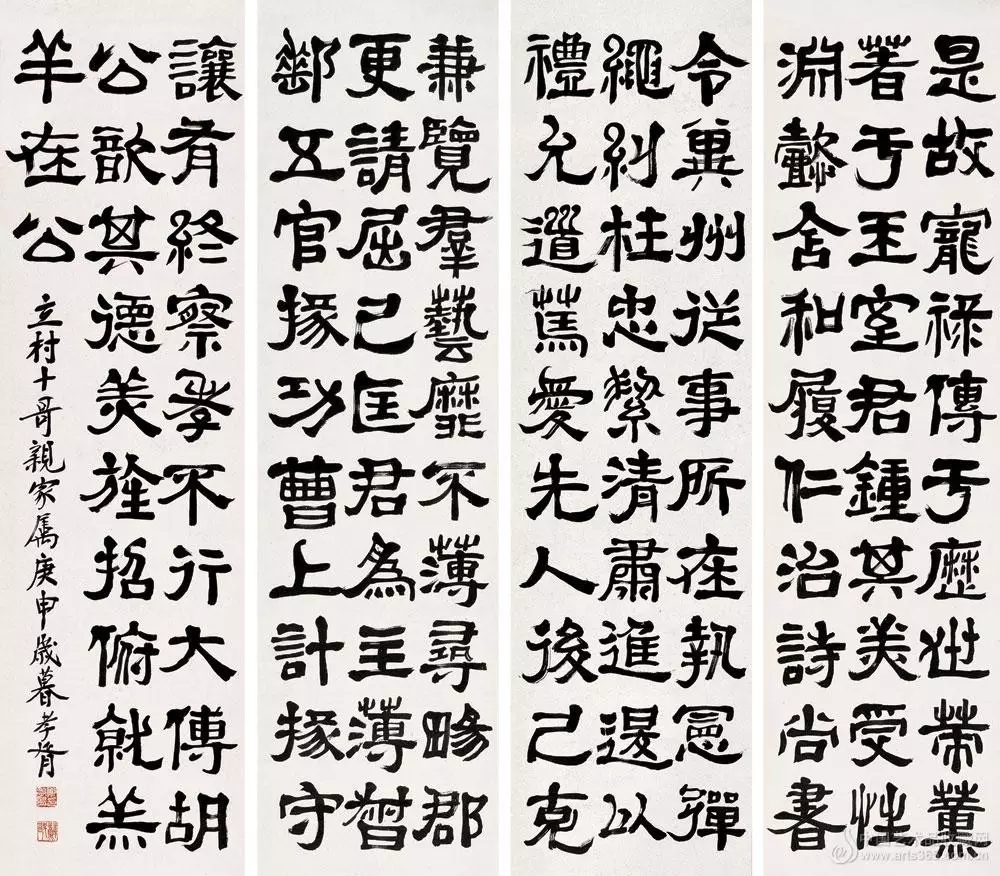 是故寵祿傳于歷世策薰
著于王室君鍾其美受性
淵懿含和履仁治詩尚書
令冀州從事所在執憲彈
繩糾枉忠絜清肅進退以
禮允道篤愛先人後己克
兼覽羣藝靡不薄尋暢郡
更請屈己匡君為主薄督
郵五官掾功曹上計掾守
讓有終察孝不行大傅胡
公歆其德美旌招俯就羔
羊在公
立村十哥親家属庚申歲暮孝胥
www.arts365.com.cn